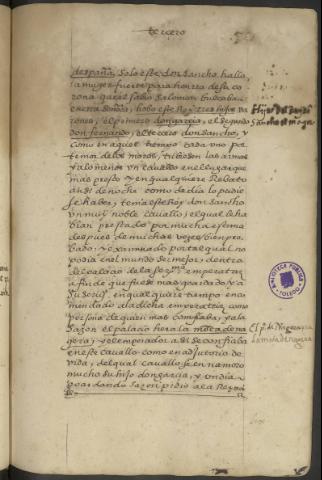 tercero
despaña, Solo este don Sancho hallo,
la muger fuerte para honrra de su co
rona que el sabio Salomon buscaba
hobo este Rey tres hijos va
rones, el primero don garçia, el segundo
don fernando, el tercero don Sancho, y
como en aquel tiempo cada uno po
tema de los moros, tubiesen las armas
a lo menos un cauallo en
mas presto en qualquiera Rebato
ansi de noche como de dia lo pudie
se haber, tenia este Rey don Sancho
un muy noble cauallo, el qual le ha
bian prestado por mucha estima
despues de muchas vezes bien pro
bado, y examinado por tal qual no
podia en el mundo ser mejor, dentro
del palacio de la emperatriz
a fin de que fuese mas guardado
su servi en qualquiera tiempo en co
mendado a la dicha emperatriz como
persona de quien mas confiaba, y a la
Sazon el palacio hera la mota de na
gera, y el emperador ansi se confiaba
en este cauallo como en adjutorio de
vida, del qual cauallo se enamoro
mucho su hijo don garcia, y un dia
dando Sazon pidio a la Reyna
Hijos del
Sancho
El p.º de Naguera
La mota de Nagera
BIBLIOTECA PUBLICA
TOLEDO